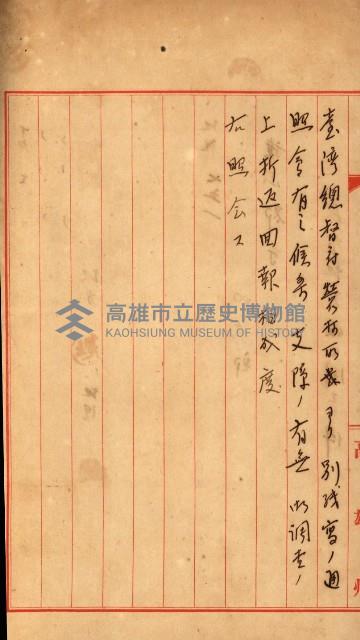 臺灣總督府營林所長ヨリ別紙寫ノ通
照會有之候条支障ノ有無御調査ノ
上折返回報相成度
右照会ス
高雄州
高雄市立歷史博物館
KAOHSIUNG MUSEUM OF HISTORY